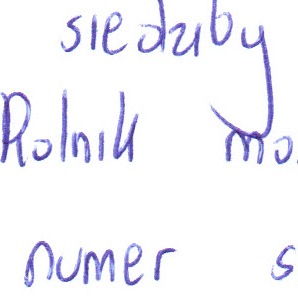 siedziby
Rolnik mo
numer s